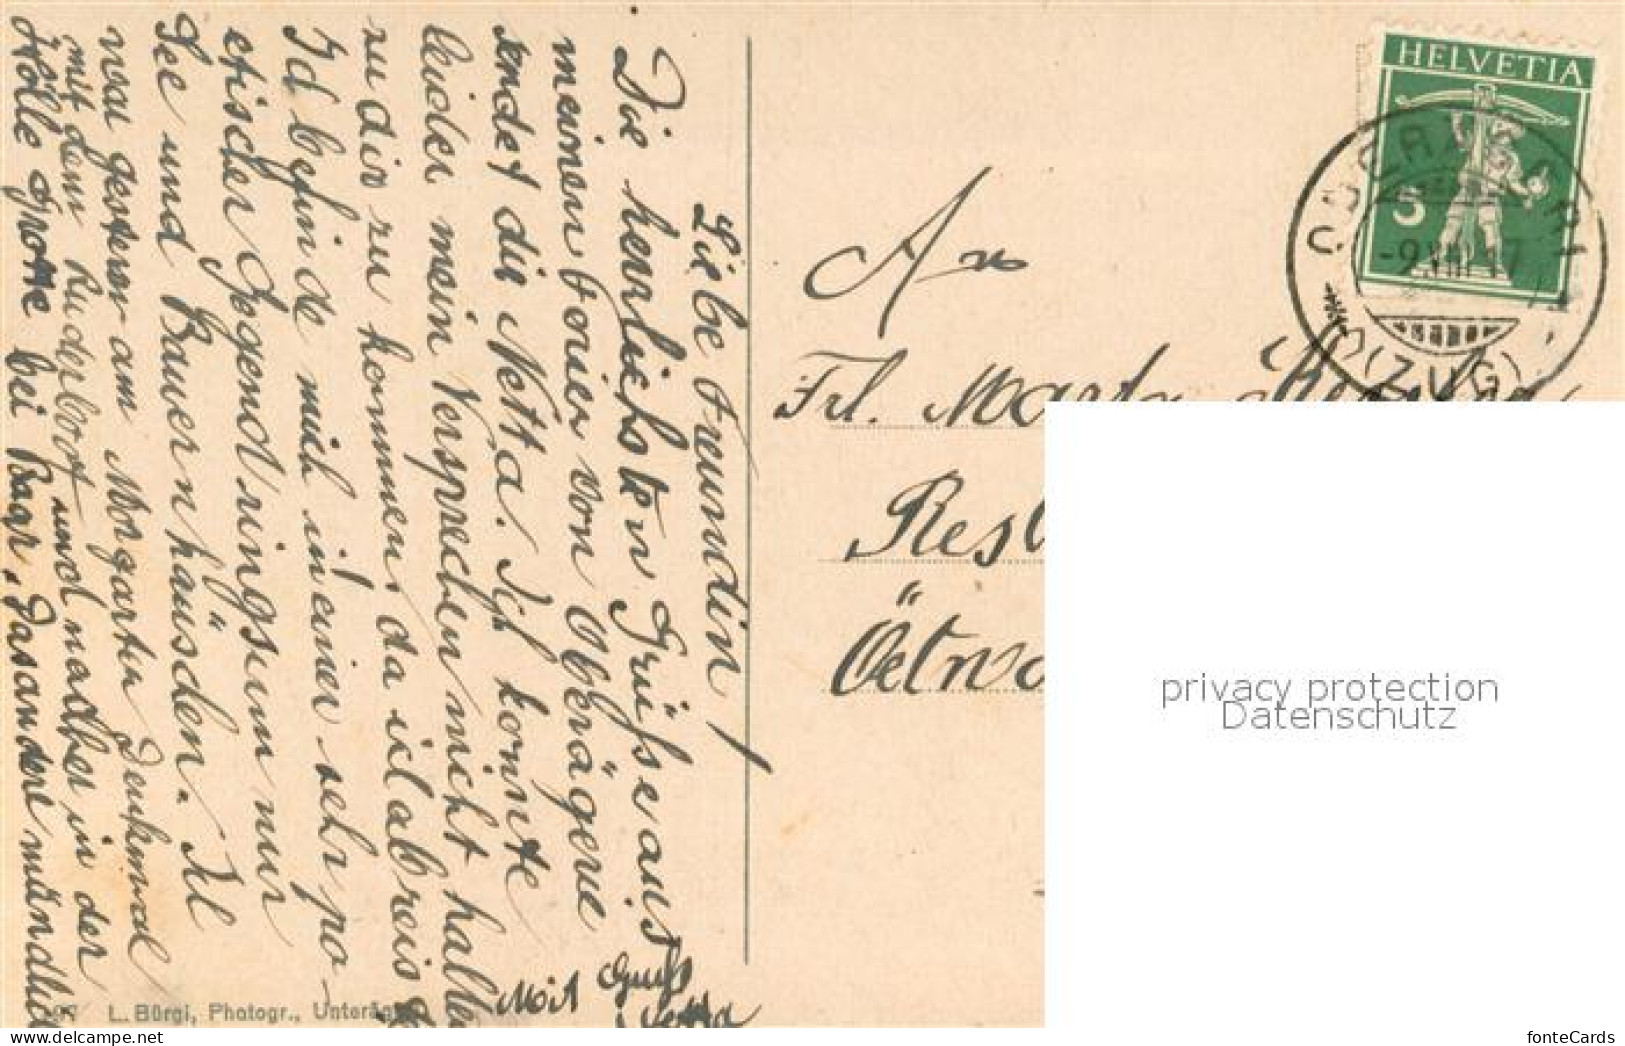 Liebe Freundin!
Die herrlichsten Grüsse aus
meinen ferien von Oberägerie
sendet dir Netta. Ich konnte
leider mein Versprechen nicht halten
zu dir zu kommen, da ich abreis
Ich befinde mich in einer sehr po-
etischer Gegend ringsum nur
See und Bauernhäuschen. Ich
war gestern am Morgarten Denkmal
mit dem Ruderboot und nachher in der
Hölle Grotte bei Baar. Das andere mündlich
Mit Gruss
Netta
197 L. Bürgi, Photogr., Unteräg
HELVETIA
5
OBERÄGERI
-9.VIII.17
(ZUG)
An
Frl. Marta
Rest
Oetw
privacy protection
Datenschutz
fonteCards